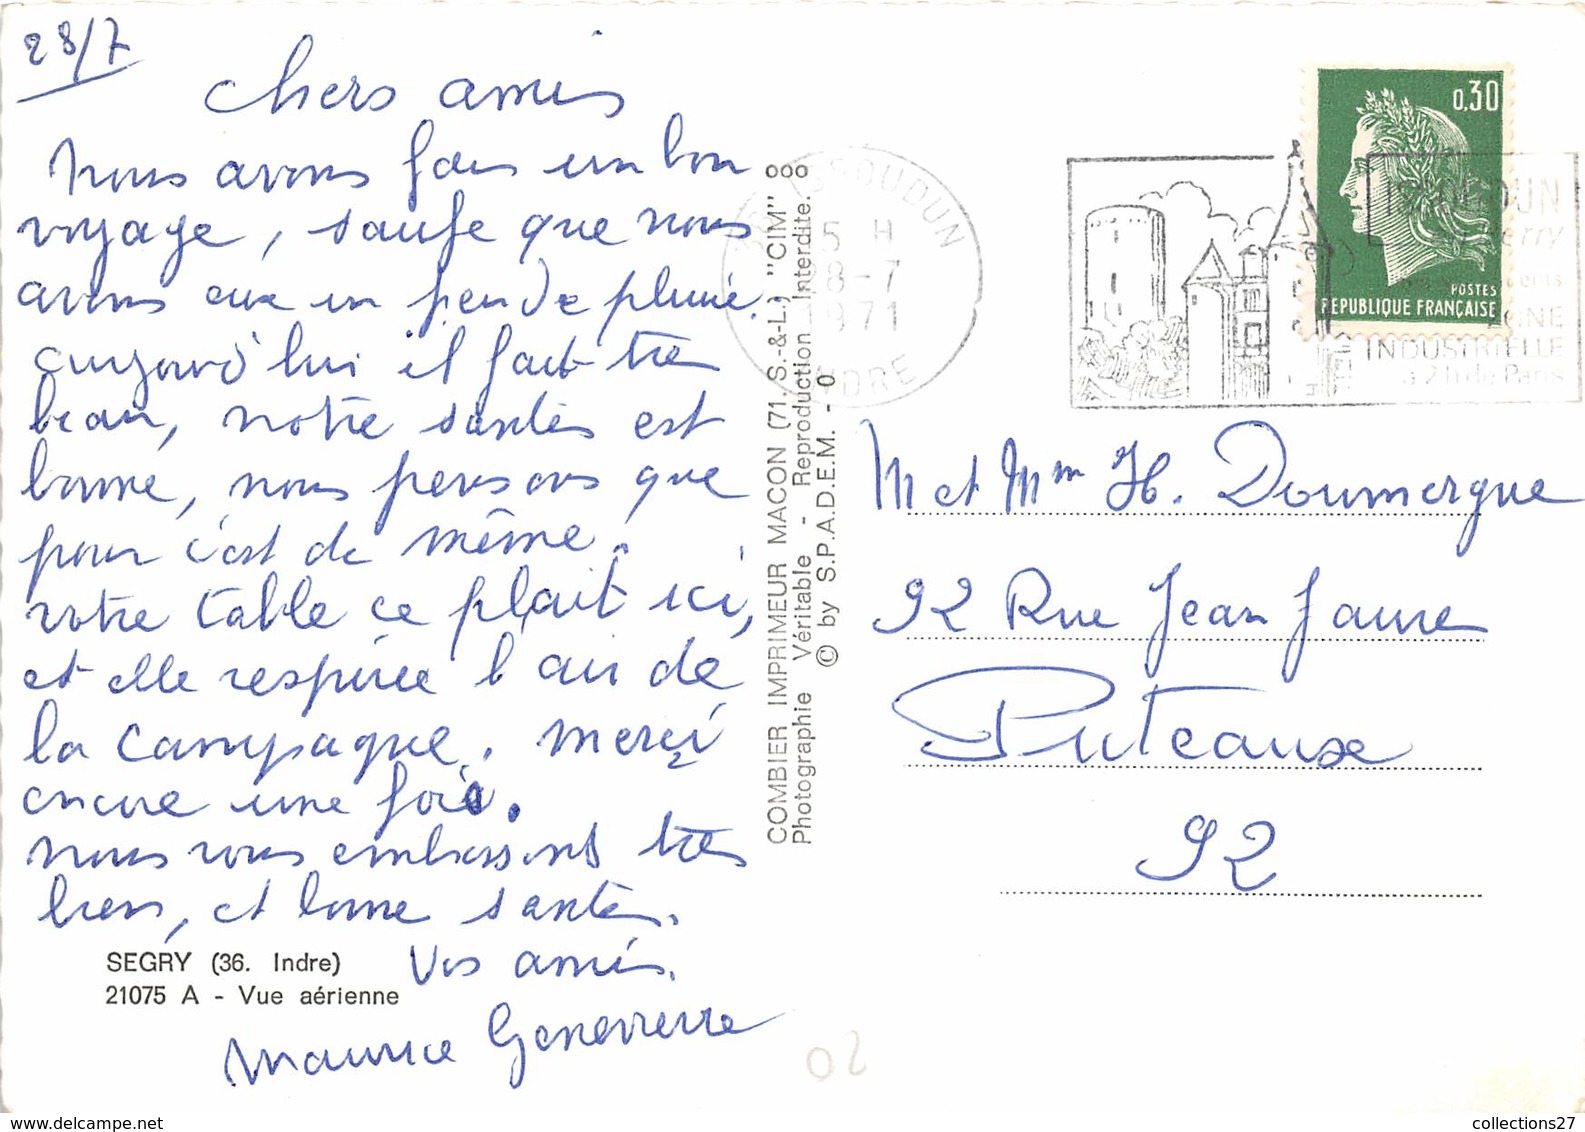 28/7
Chers amis
Nous avons fais un bon
voyage, saufe que nous
avons eux un peu de pluie.
aujourd'hui il fait très
beau, notre santés est
bonne, nous pensons que
pour c'est de même.
votre table ce plait ici,
et elle respirée l'air de
la campagne. Merci
encore une fois.
nous vous embrassons très
bien, et bonne santés.
Vos amis.
Maurice Genevierre
SEGRY (36. Indre)
21075 A - Vue aérienne
COMBIER IMPRIMEUR MACON (71, S.-&-L.) "CIM"
Photographie Véritable - Reproduction Interdite.
© by S.P.A.D.E.M. - 0
ISSOUDUN
15 H
28-7
1971
INDRE
0,30
POSTES
REPUBLIQUE FRANÇAISE
ISSOUDUN
ZONE
INDUSTRIELLE
à 2h de Paris
M et Mm H. Doumergue
92 Rue Jean Jaures
Puteaux
92
02
collections27